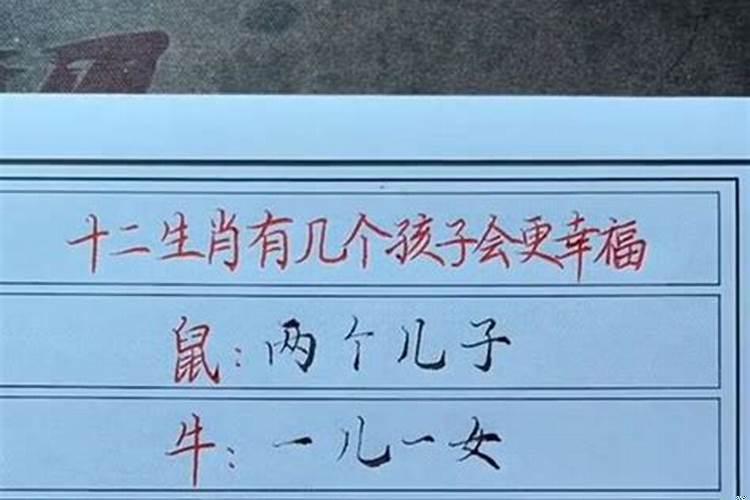 十二生肖有几个孩子会更幸福
鼠：两个儿子
牛：一儿一女